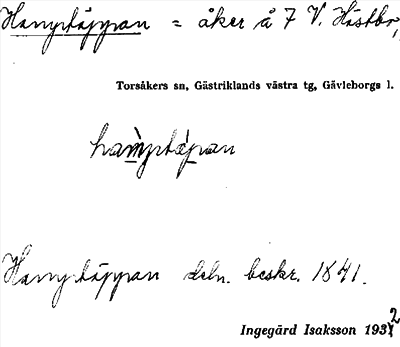 Hamptäppan = åker å 7 V. Hästbo,
Torsåkers sn, Gästriklands västra tg, Gävleborgs l.
ham̀ptäpan
Hamptäppan deln. beskr. 1841.
Ingegärd Isaksson 1932